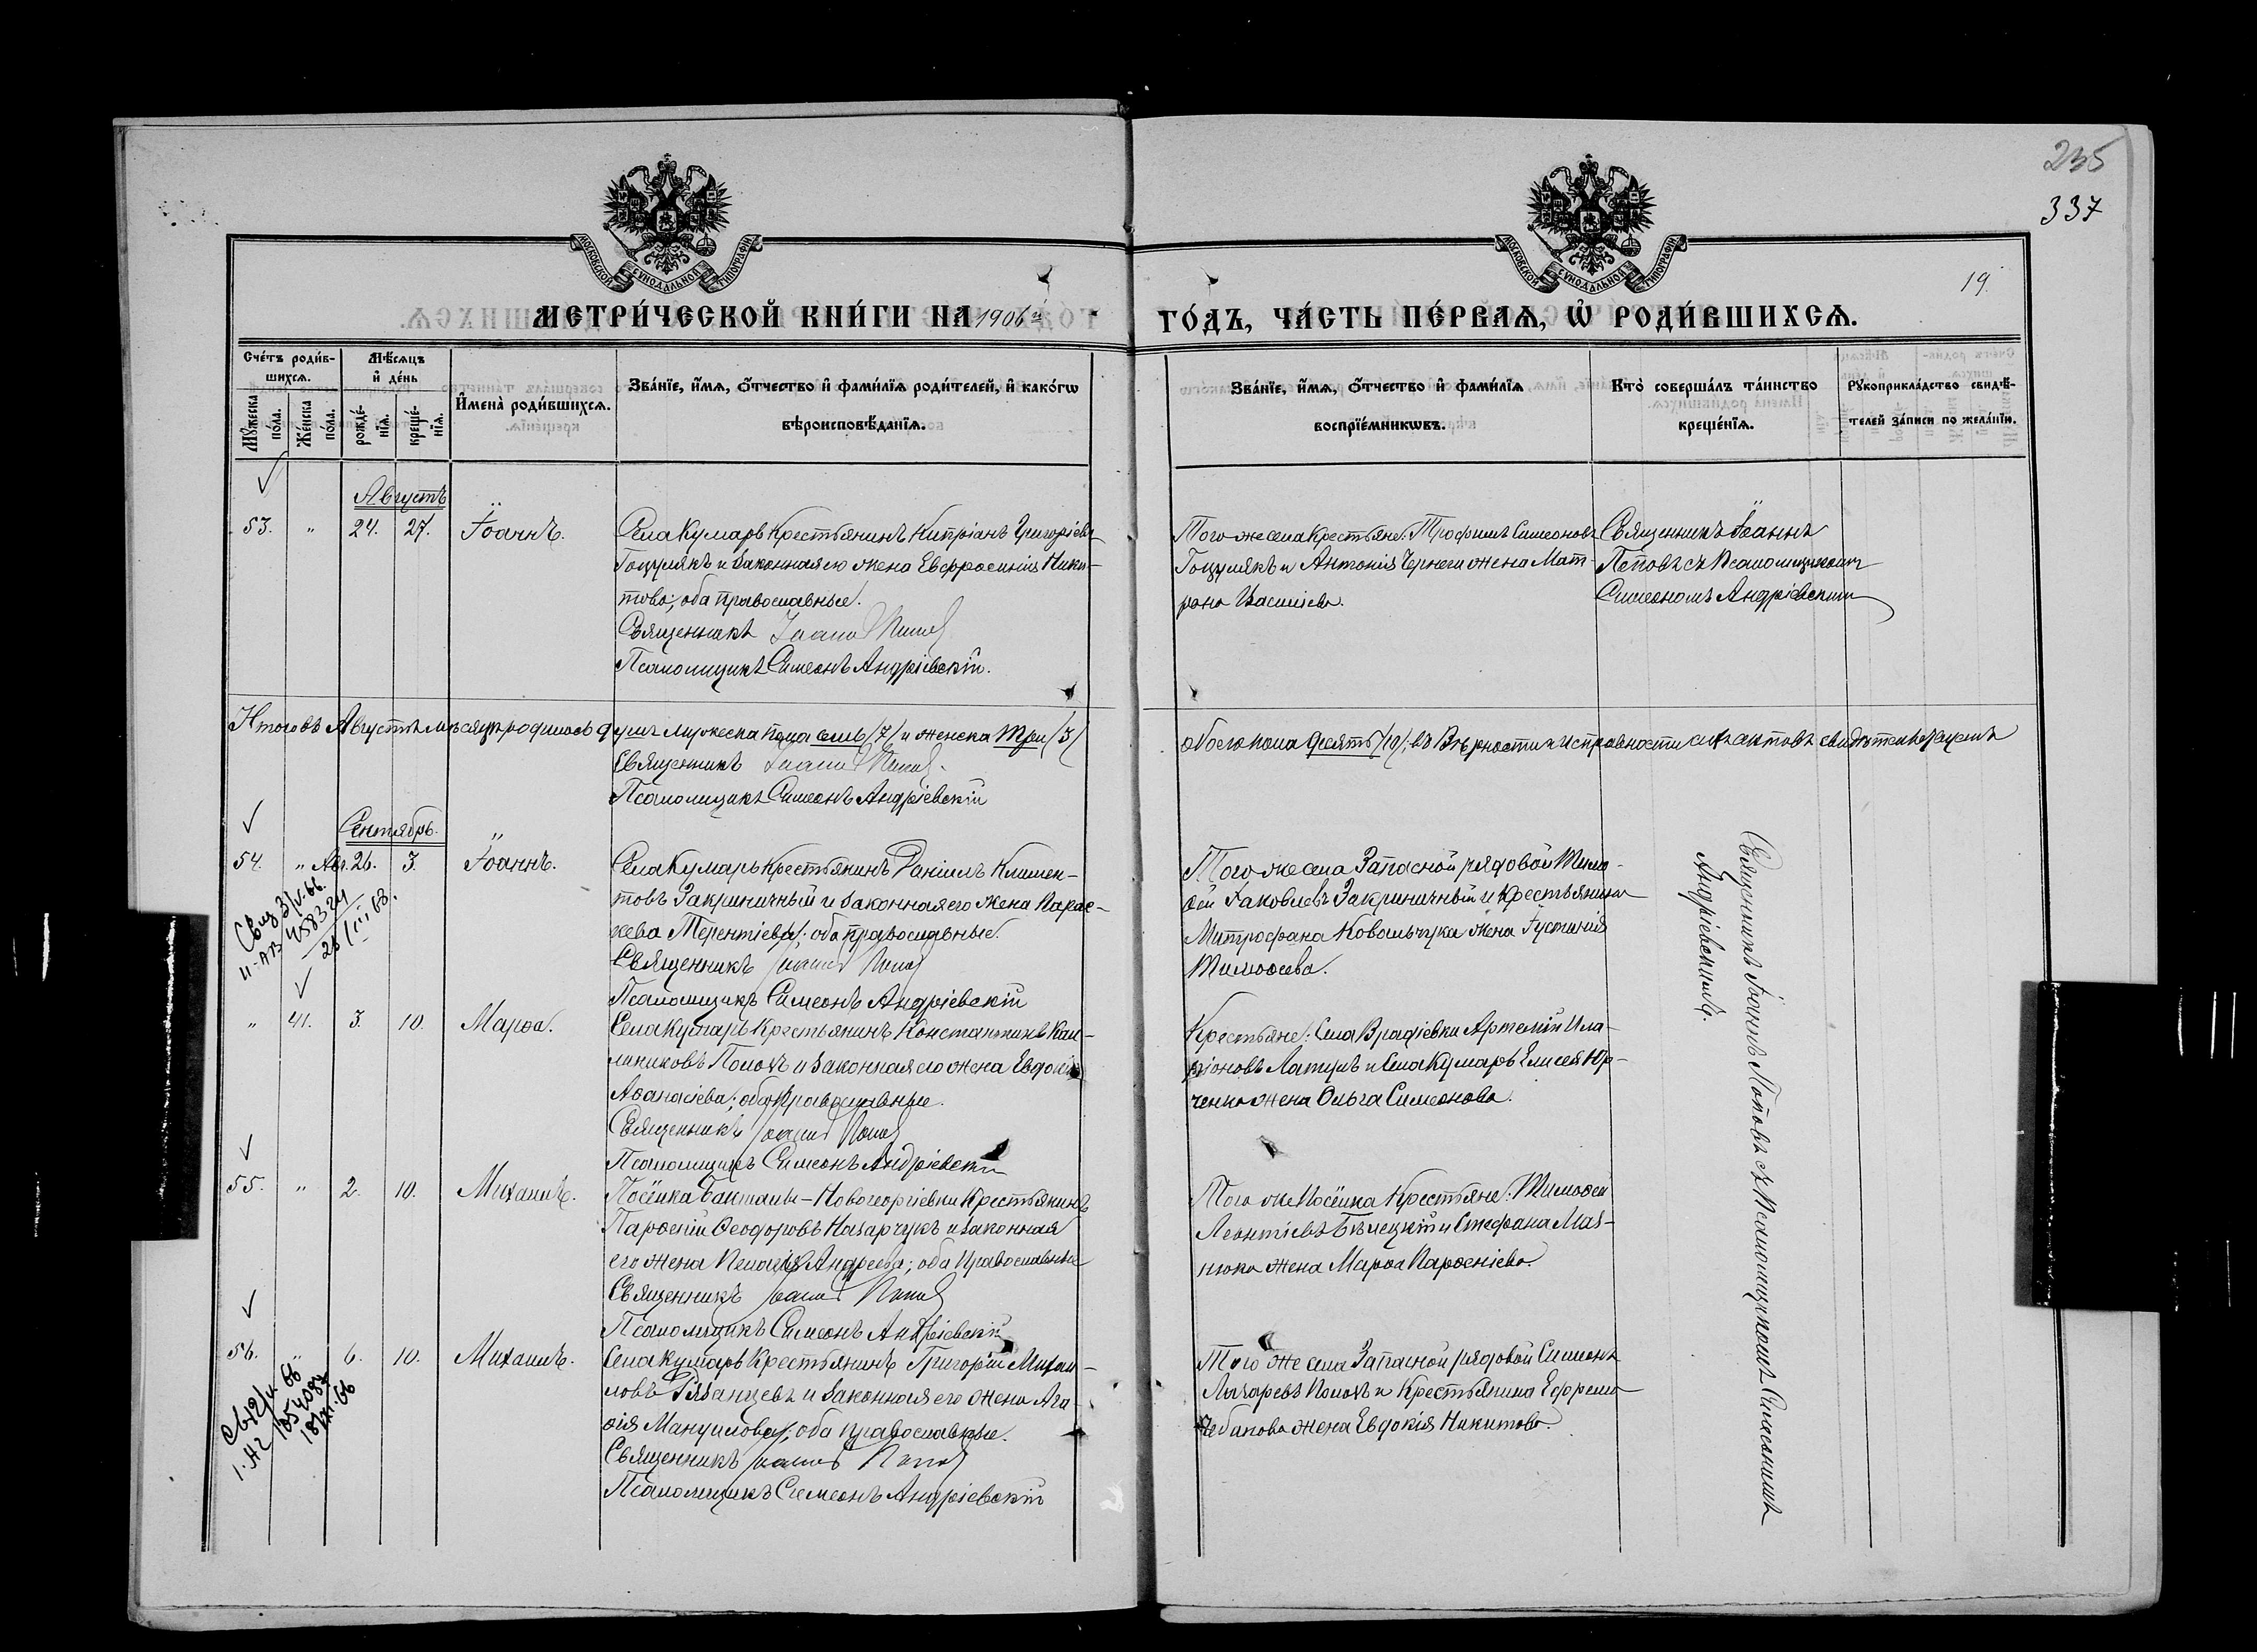 235
337
19.
МОСКОВСКОЙ СѴНОДАЛЬНОЙ ТИПОГРАФІИ
МОСКОВСКОЙ СѴНОДАЛЬНОЙ ТИПОГРАФІИ
МЕТРИ́ЧЕСКОЙ КНИ́ГИ НА 1906й
ГО́ДЪ, ЧА́СТЬ ПЕ́РВАѦ, Ѡ҆ РОДИ́ВШИХСѦ.
Сче́тъ роди́в-
шихсѧ.
Мꙋ́жеска пола.
Же́нска по́ла.
Мѣ́сѧцъ
и҆ де́нь
рожде́-
нїѧ.
креще́-
нїѧ.
И҆мена̀ роди́вшихсѧ.
Зва́нїе, и҆́мѧ, ѻ҆́тчество и҆ фами́лїѧ роди́телей, и҆ како́гѡ
вѣроисповѣ́данїѧ.
Зва́нїе, и҆́мѧ, ѻ҆́тчество и҆ фами́лїѧ
воспрїе́мникѡвъ.
Кто̀ соверша́лъ та́инство
креще́нїѧ.
Рꙋкоприкла́дство свидѣ́-
телей за́писи по жела́нїи.
Августъ
53. " 24. 27. Іоаннъ.
Села Кумаръ Крестьянинъ Кипріанъ Григоріевъ
Гоцулякъ и законная его жена Евфросинія Ники-
това; оба православные.
Священникъ Іоаннъ Поповъ
Псаломщикъ Симеонъ Андріевскій.
Того же села Крестьяне: Трофимъ Симеоновъ
Гоцулякъ и Антонія Чернеги жена Мат-
рона Васильева.
Священникъ Іоаннъ
Поповъ съ Псаломщикомъ
Симеономъ Андріевскимъ
Итого въ Августѣ мѣсяцѣ родилось душъ мужеска пола семь /7/ и женска три /3/
обоего пола десять /10/; въ вѣрности и исправности сихъ актовъ свидѣтельствуемъ
Священникъ Іоаннъ Поповъ
Псаломщикъ Симеонъ Андріевскій
Сентябрь.
54. " Авг. 26. 3. Іоаннъ.
Села Кумаръ Крестьянинъ Даніилъ Климен-
товъ Закриничный и законная его жена Парас-
кева Терентіева; оба православные.
Священникъ Іоаннъ Поповъ
Псаломщикъ Симеонъ Андріевскій
Того же села Запасной рядовой Тимо-
фей Іаковлевъ Закриничный и Крестьянина
Митрофана Ковальчука жена Іустинія
Тимоѳеева.
II-АВ 458324
26/III 68.
" 41. 3. 10. Марѳа.
Села Кумаръ Крестьянинъ Константинъ Кал-
линиковъ Попикъ и законная его жена Евдокія
Аѳанасіева; оба Православные.
Священникъ Іоаннъ Поповъ
Псаломщикъ Симеонъ Андріевскій
Крестьяне: Села Врадіевки Артемій Ила-
ріоновъ Латулъ и Села Кумаръ Елисея Юр-
ченка жена Ольга Симеонова.
55. " 2. 10. Михаилъ.
Посёлка Бакталы-Новогеоргіевки Крестьянинъ
Парѳеній Ѳеодоровъ Назарчукъ и законная
его жена Пелагія Андреева; оба Православные
Священникъ Іоаннъ Поповъ
Псаломщикъ Симеонъ Андріевскій
Того же Посёлка Крестьяне: Тимоѳей
Леонтіевъ Бѣлецкій и Стефана Маз-
нюка жена Марѳа Парѳеніева.
56. " 6. 10. Михаилъ.
Села Кумаръ Крестьянинъ Григорій Михаи-
ловъ Рязанцевъ и законная его жена Ага-
ѳія Мануилова; оба православные.
Священникъ Іоаннъ Поповъ
Псаломщикъ Симеонъ Андріевскій
Того же села Запасной рядовой Симеонъ
Лазаревъ Попикъ и Крестьянина Ефрема
Чебанова жена Евдокія Никитова.
Священникъ Іоаннъ Поповъ съ Псаломщикомъ Симеономъ
Андріевскимъ.